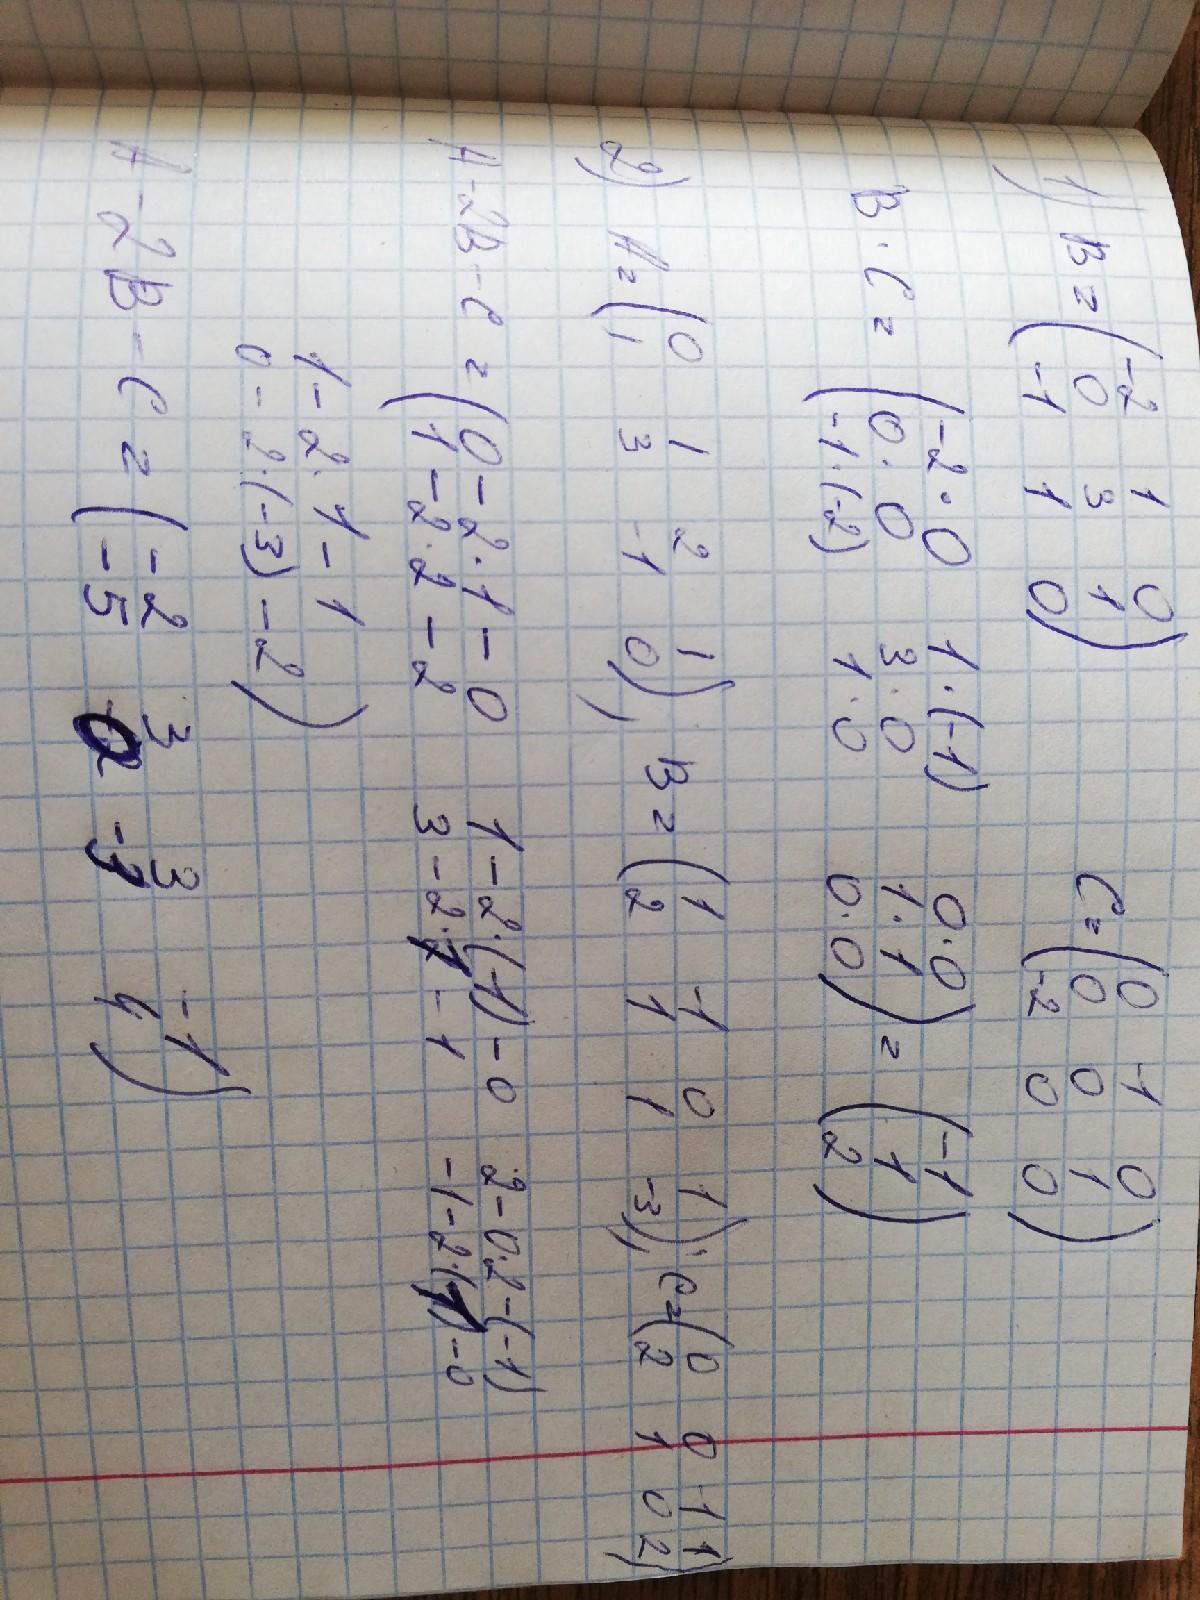 1) B = ( -2 1 0
0 3 1
-1 1 0 )
C = ( 0 -1 0
0 0 1
-2 0 0 )
B · C = ( -2·0 1·(-1) 0·0
0·0 3·0 1·1
-1·(-2) 1·0 0·0 ) = ( -1
1
2 )
2) A = ( 0 1 2 1
1 3 -1 0 ), B = ( 1 -1 0 1
2 1 1 -3 ), C = ( 0 0 -1 1
2 1 0 2 )
A - 2B - C = ( 0-2·1-0 1-2·(-1)-0 2-0·2-(-1)
1-2·2-2 3-2·1-1 -1-2·(1)-0
1-2·1-1
0-2·(-3)-2 )
A - 2B - C = ( -2 3 3 -1
-5 0 -3 4 )